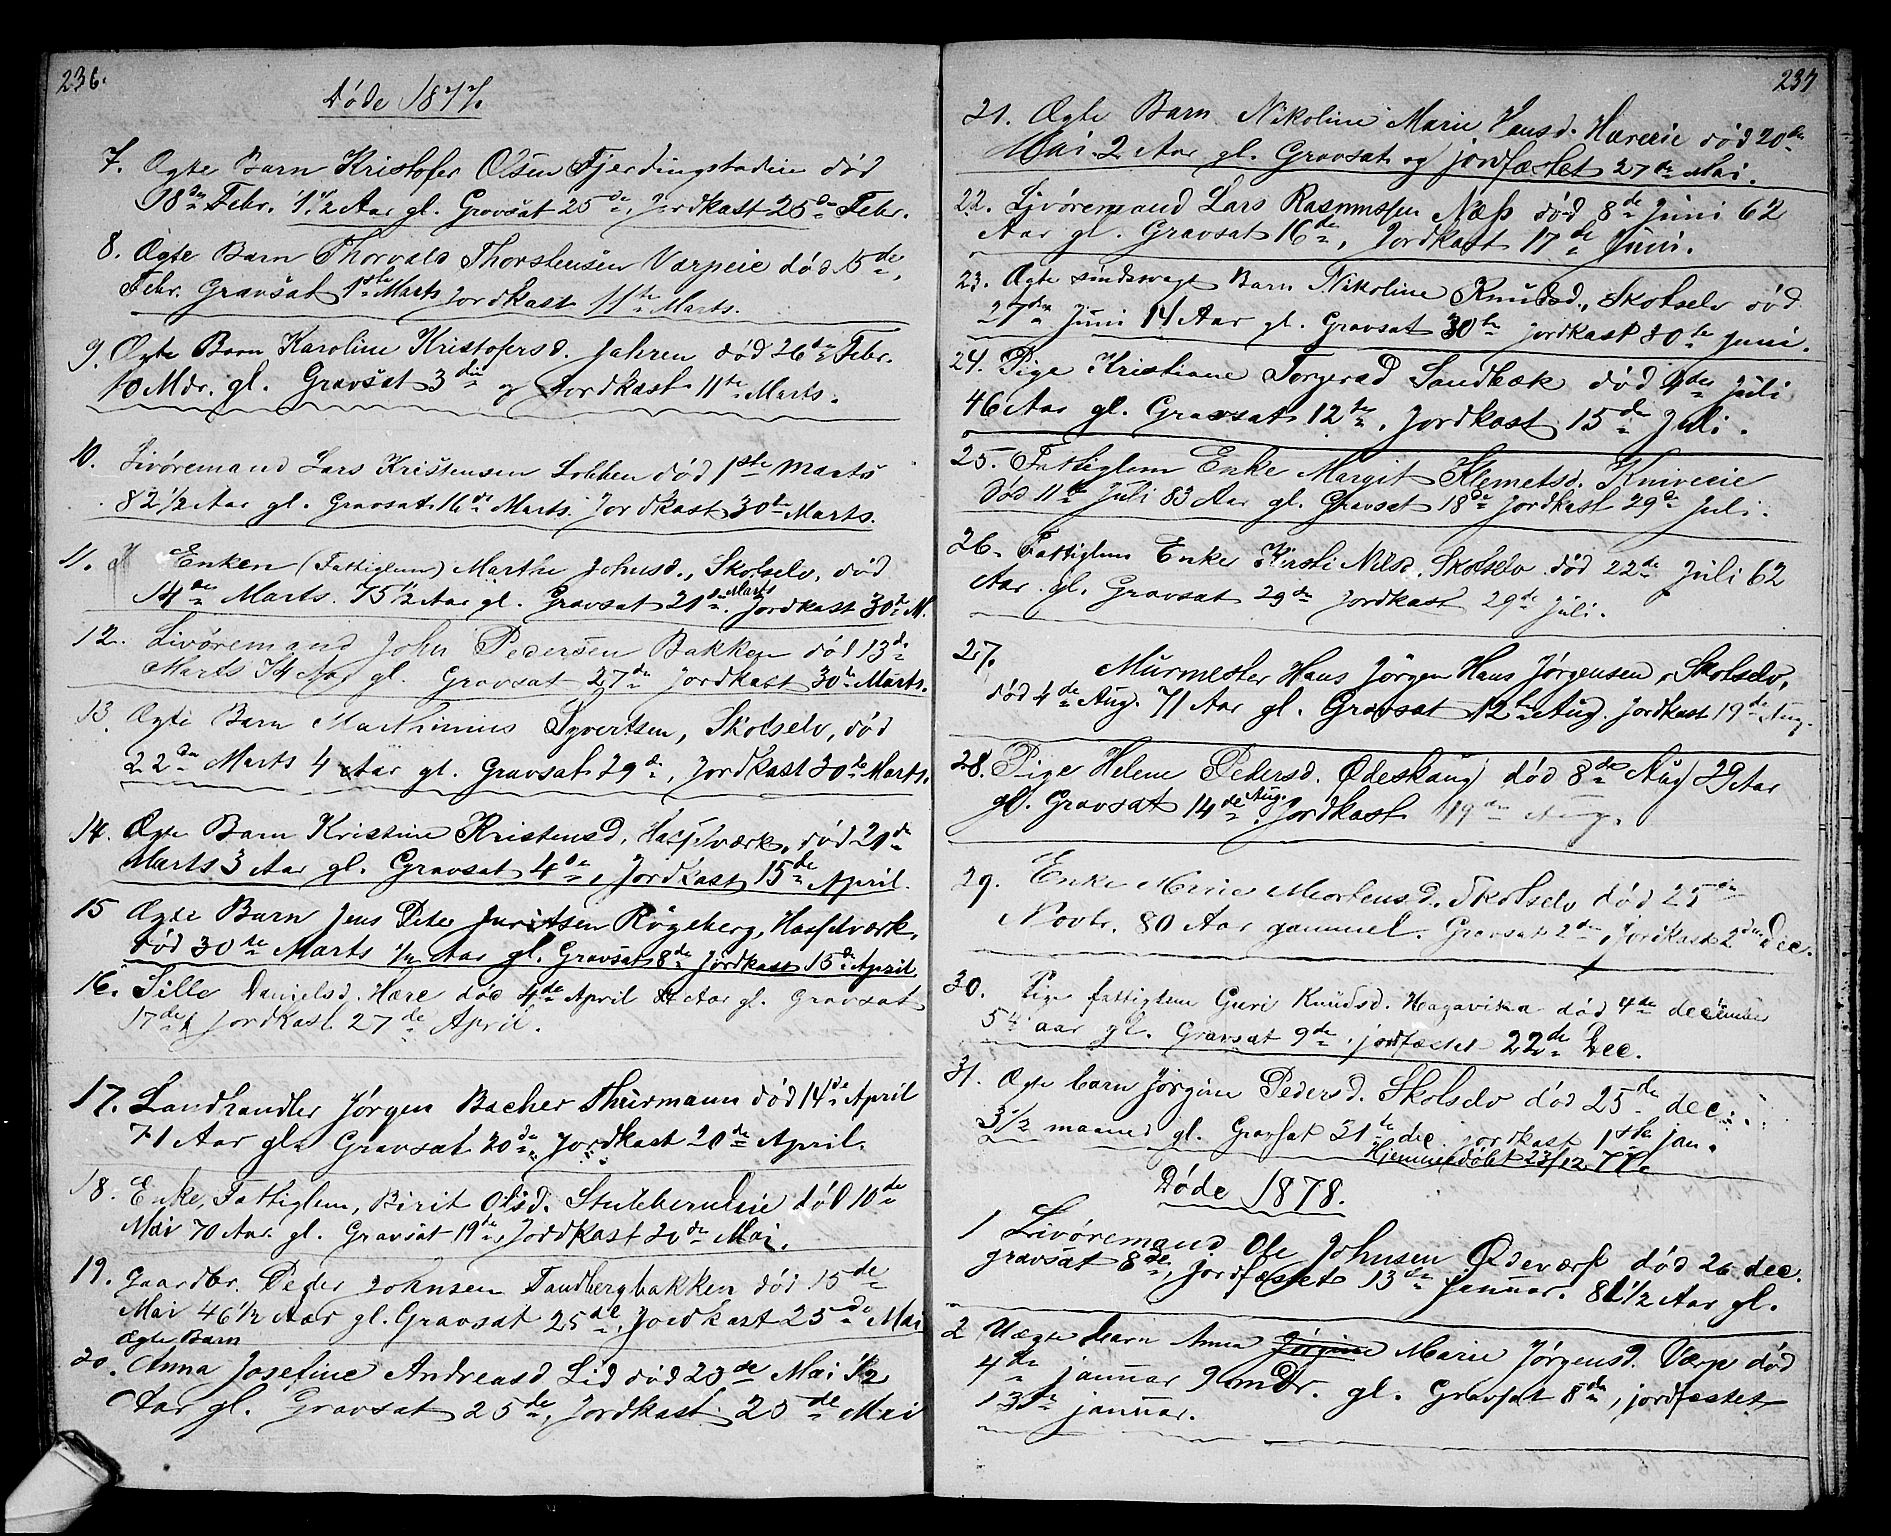 236.
Døde 1877.
7. Ægte Barn Kristofer Olsen Fjerdingstadeie død
18de Febr. 1 1/2 Aar gl. Gravsat 25de, Jordkast 25de Febr.
8. Ægte Barn Thorvald Thorstensen Værpeie død 15de
Febr. Gravsat 1ste Marts Jordkast 11te Marts.
9. Ægte Barn Karoline Kristofersd. Jahren død 26de Febr.
10 Mdr. gl. Gravsat 3die og Jordkast 11te Marts.
10. Livøremand Lars Kristensen Lobben død 1ste Marts
82 1/2 Aar gl. Gravsat 16de Marts. Jordkast 30te Marts.
11. Enken (Fattiglem) Marthe Johnsd., Skotselv, død
14de Marts. 75 1/2 Aar gl. Gravsat 21de Marts Jordkast 30te M.
12. Livøremand John Pedersen Bakken død 13de
Marts 74 Aar gl. Gravsat 27de Jordkast 30te Marts.
13. Ægte Barn Marthinius Syvertsen, Skotselv, død
22de Marts 4 Aar gl. Gravsat 29de, Jordkast 30te Marts.
14. Ægte Barn Kristine Kristensd. Hasselværk, død 20de
Marts 3 Aar gl. Gravsat 4de, Jordkast 15de April.
15 Ægte Barn Jens Peter Juritsen Røgeberg, Hasselværk,
død 30te Marts 1/2 Aar gl. Gravsat 8de Jordkast 15de April.
16. Sille Danielsd. Hære død 4de April 84 Aar gl. Gravsat
17de, Jordkast 27de April.
17. Landhandler Jørgen Bacher Thurmann død 14de April
71 Aar gl. Gravsat 20de, Jordkast 20de April.
18. Enke, Fattiglem, Birit Olsd. Stubberudeie død 10de
Mai 70 Aar gl. Gravsat 19de, Jordkast 20de Mai.
19. Gaardbr. Peder Johnsen Tandbergbakken død 15de
Mai 46 1/2 Aar gl. Gravsat 25de, Jordkast 25de Mai
Ægte Barn
20. Anna Josefine Andreasd Lid død 23de Mai 1/2
Aar gl. Gravsat 25de, Jordkast 25de Mai
237
21. Ægte Barn Nikoline Marie Hansd. Hæreeie død 20de
Mai 2 Aar gl. Gravsat og jordfæstet 27de Mai.
22. Livøremand Lars Rasmussen Næss død 8de Juni 62
Aar gl. Gravsat 16de, Jordkast 17de Juni.
23. Ægte sindsvagt Barn Nikoline Knudsd., Skotselv død
27de Juni 14 Aar gl. Gravsat 30te jordkast 30te Juni.
24. Pige Kristiane Torgersd Sandbæk død 4de Juli
46 Aar gl. Gravsat 12te, Jordkast 15de Juli.
25. Fattiglem Enke Margit Klemetsd. Kniveeie
død 11te Juli 83 Aar gl. Gravsat 18de Jordkast 29de Juli.
26. Fattiglem Enke Kirsti Nilsd. Skotselv død 22de Juli 62
Aar gl. Gravsat 29de Jordkast 29de Juli.
27. Murmester Hans Jørgen Hans Jørgensen, Skotselv,
død 4de Aug. 71 Aar gl. Gravsat 12te Aug. jordkast 19de Aug.
28. Pige Helene Pedersd. Ødeskaug død 8de Aug 29 Aar
gl. Gravsat 14de Aug. Jordkast 19de Aug.
29. Enke Marie Mortensd. Skotselv død 25de
Novbr. 80 Aar gammel. Gravsat 2den, jordkast 2den Dec.
30. Pige fattiglem Guri Knudsd. Hagavika død 4de december
54 aar gl. Gravsat 9de, jordfæstet 22de Dec.
31. Ægte barn Jørgine Pedersd. Skotselv død 25de dec.
3 1/2 maaned gl. Gravsat 31te dec. jordkast 1ste jan.
Hjemmedøbt 23/12 77.
Døde 1878.
1 Livøremand Ole Johnsen Ødeværp død 26 dec.
gravsat 8de, jordfæstet 13de januar. 81 1/2 Aar gl.
2 Uægte barn Anna Jørgine Marie Jørgensd. Værp død
4de januar 9 mdr. gl. Gravsat 8de, jordfæstet
13de januar.